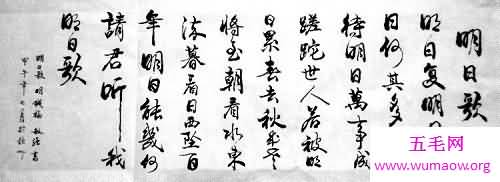 明日歌
明日复明
日何其多
待明日萬事成
蹉跎世人若被明
日累春去秋來老
將至朝看水東
流暮看日西墜百
年明日能幾何
請君听我
明日歌
明日歌 明 錢福 書
甲午年七月於
五毛网
www.wumaow.org